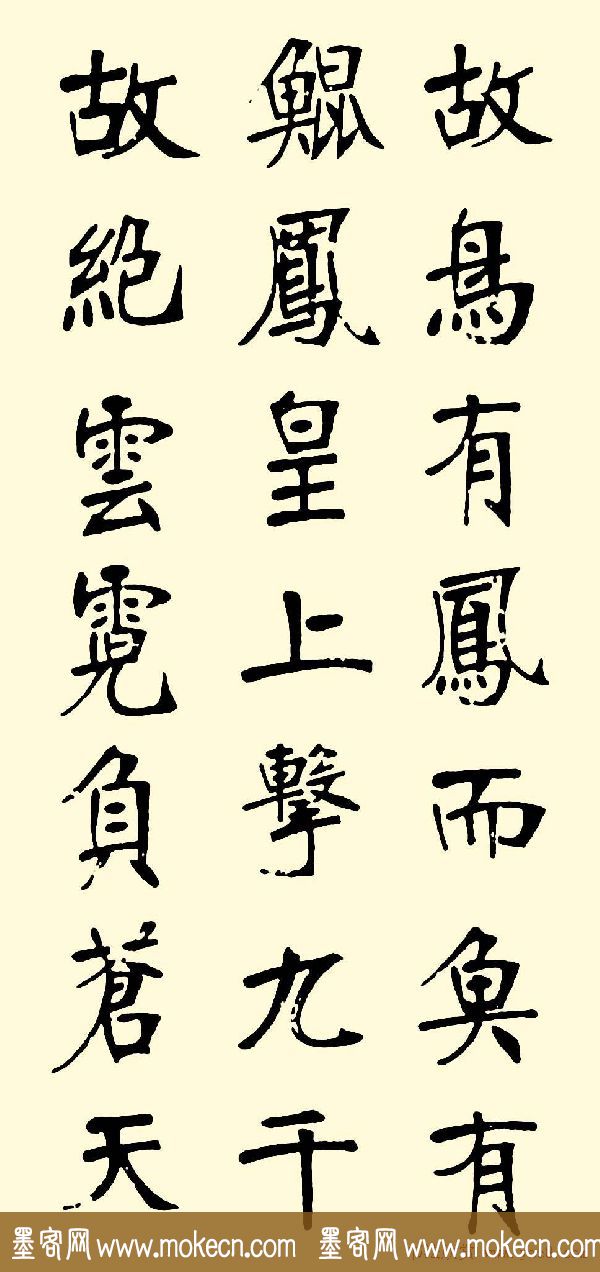 故鳥有鳳而魚有
鯤鳳皇上擊九千
故絕雲霓負蒼天
墨客网 www.mokecn.com 墨客网 www.mokecn.com